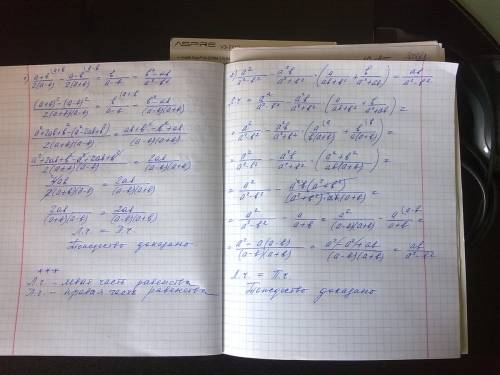 ASPIRE
1) \frac{a+b}{2(a-b)}^{\a+b} - \frac{a-b}{2(a+b)}^{\a-b} = \frac{b}{a-b} - \frac{b²-ab}{a²-b²}
\frac{(a+b)²-(a-b)²}{2(a+b)(a-b)} = \frac{b}{a-b}^{\a+b} - \frac{b²-ab}{(a-b)(a+b)}
\frac{a²+2ab+b²-(a²-2ab+b²)}{2(a+b)(a-b)} = \frac{ab+b²-b²+ab}{(a-b)(a+b)}
\frac{a²+2ab+b²-a²+2ab-b²}{2(a+b)(a-b)} = \frac{2ab}{(a-b)(a+b)}
\frac{4ab}{2(a+b)(a-b)} = \frac{2ab}{(a-b)(a+b)}
\frac{2ab}{(a+b)(a-b)} = \frac{2ab}{(a-b)(a+b)}
Л.ч = П.ч.
Тождество доказано
***
Л.ч. - левая часть равенства
П.ч - правая часть равенства
2) \frac{a²}{a²-b²} - \frac{a²b}{a²+b²} · (\frac{a}{ab+b²} + \frac{b}{a²+ab}) = \frac{ab}{a²-b²}
Л.ч = \frac{a²}{a²-b²} - \frac{a²b}{a²+b²} · (\frac{a}{ab+b²} + \frac{b}{a²+ab}) =
= \frac{a²}{a²-b²} - \frac{a²b}{a²+b²} · (\frac{a}{b(a+b)}^{\a} + \frac{b}{a(a+b)}^{\b}) =
= \frac{a²}{a²-b²} - \frac{a²b}{a²+b²} · (\frac{a²+b²}{ab(a+b)}) =
= \frac{a²}{a²-b²} - \frac{a²b(a²+b²)}{(a²+b²)·ab(a+b)} =
= \frac{a²}{a²-b²} - \frac{a}{a+b} = \frac{a²}{(a-b)(a+b)} - \frac{a}{a+b}^{\a-b} =
= \frac{a²-a(a-b)}{(a-b)(a+b)} = \frac{a²-a²+ab}{(a-b)(a+b)} = \frac{ab}{a²-b²}
Л.ч = П.ч.
Тождество доказано